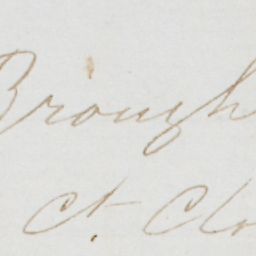 Brough
Ct. Clo